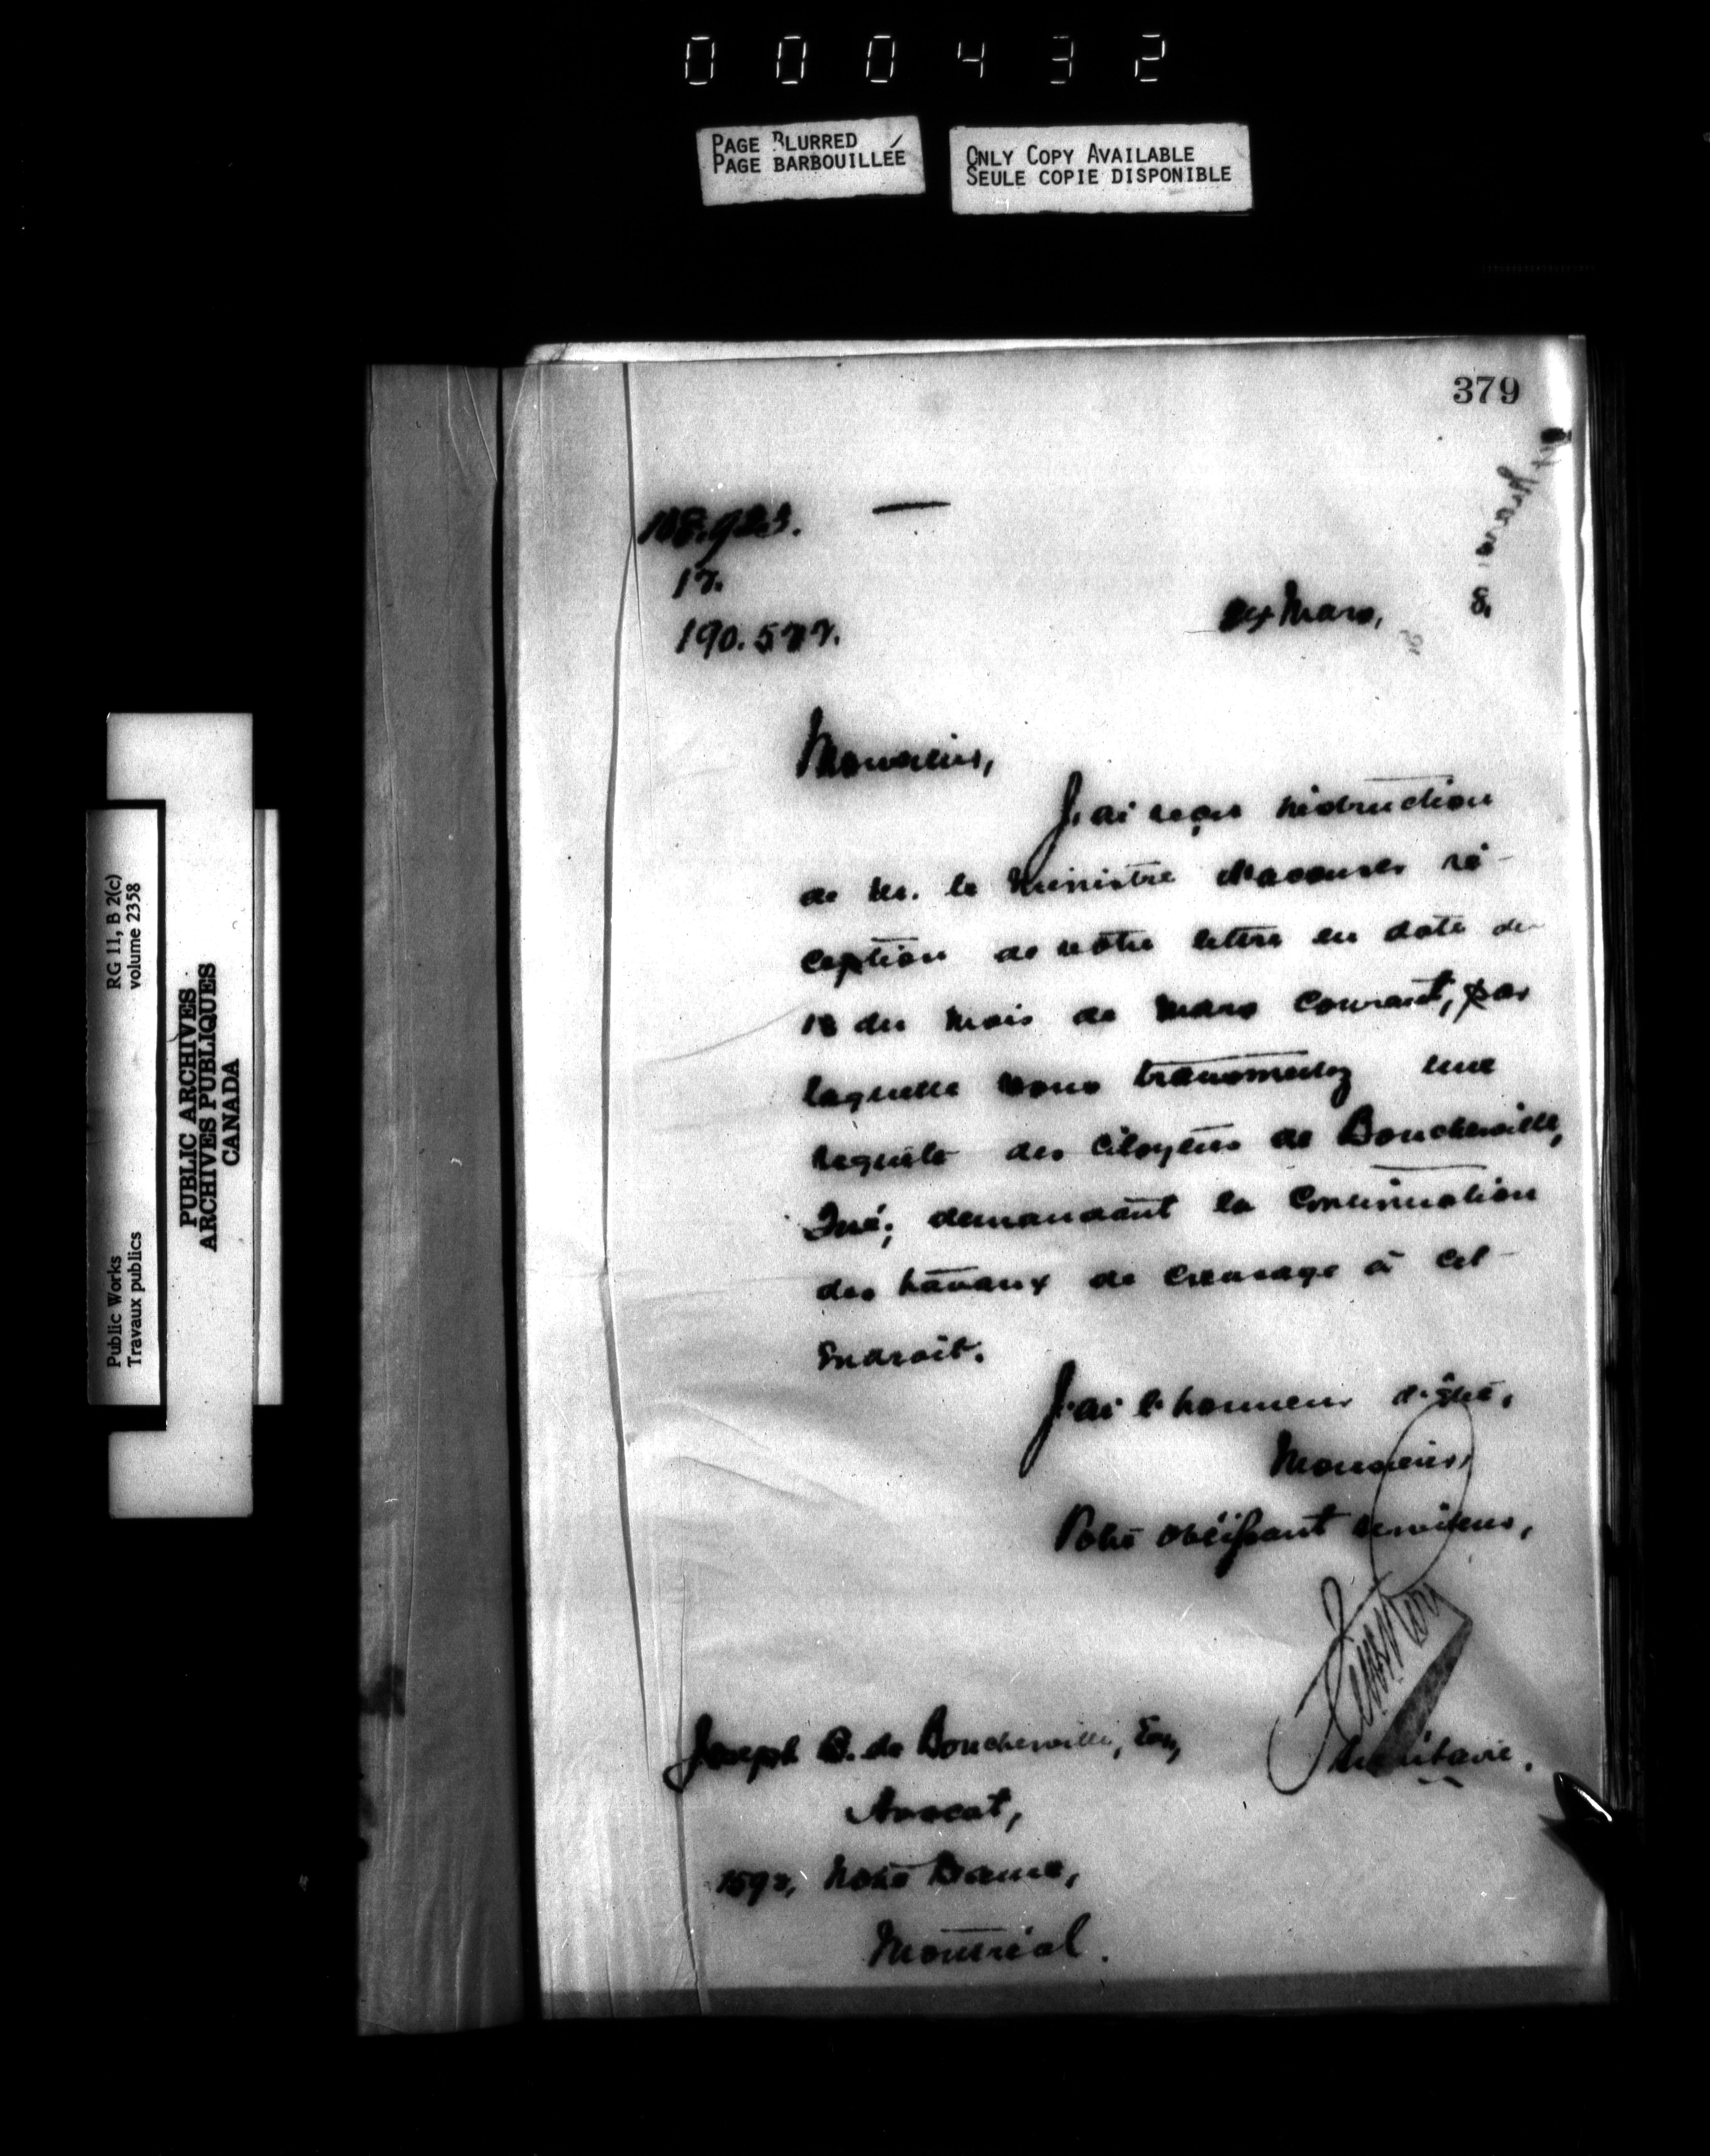 000432
PAGE BLURRED
PAGE BARBOUILLÉE
ONLY COPY AVAILABLE
SEULE COPIE DISPONIBLE
379
17.
Mars,
Monsieur,
J'ai reçu instruction
de M. le Ministre d'accuser ré-
ception de votre lettre en date du
18 du mois de Mars courant, par
laquelle vous transmettez une
requête des citoyens de Boucherville,
Qué; demandant la continuation
des travaux de creusage à cet
endroit.
J'ai l'honneur d'être,
Monsieur,
Votre obéissant serviteur,
Secrétaire.
Joseph de Boucherville,
Avocat,
Notre Dame,
Montréal.
RG 11, B 2(c)
volume 2358
Public Works
Travaux publics
PUBLIC ARCHIVES
ARCHIVES PUBLIQUES
CANADA